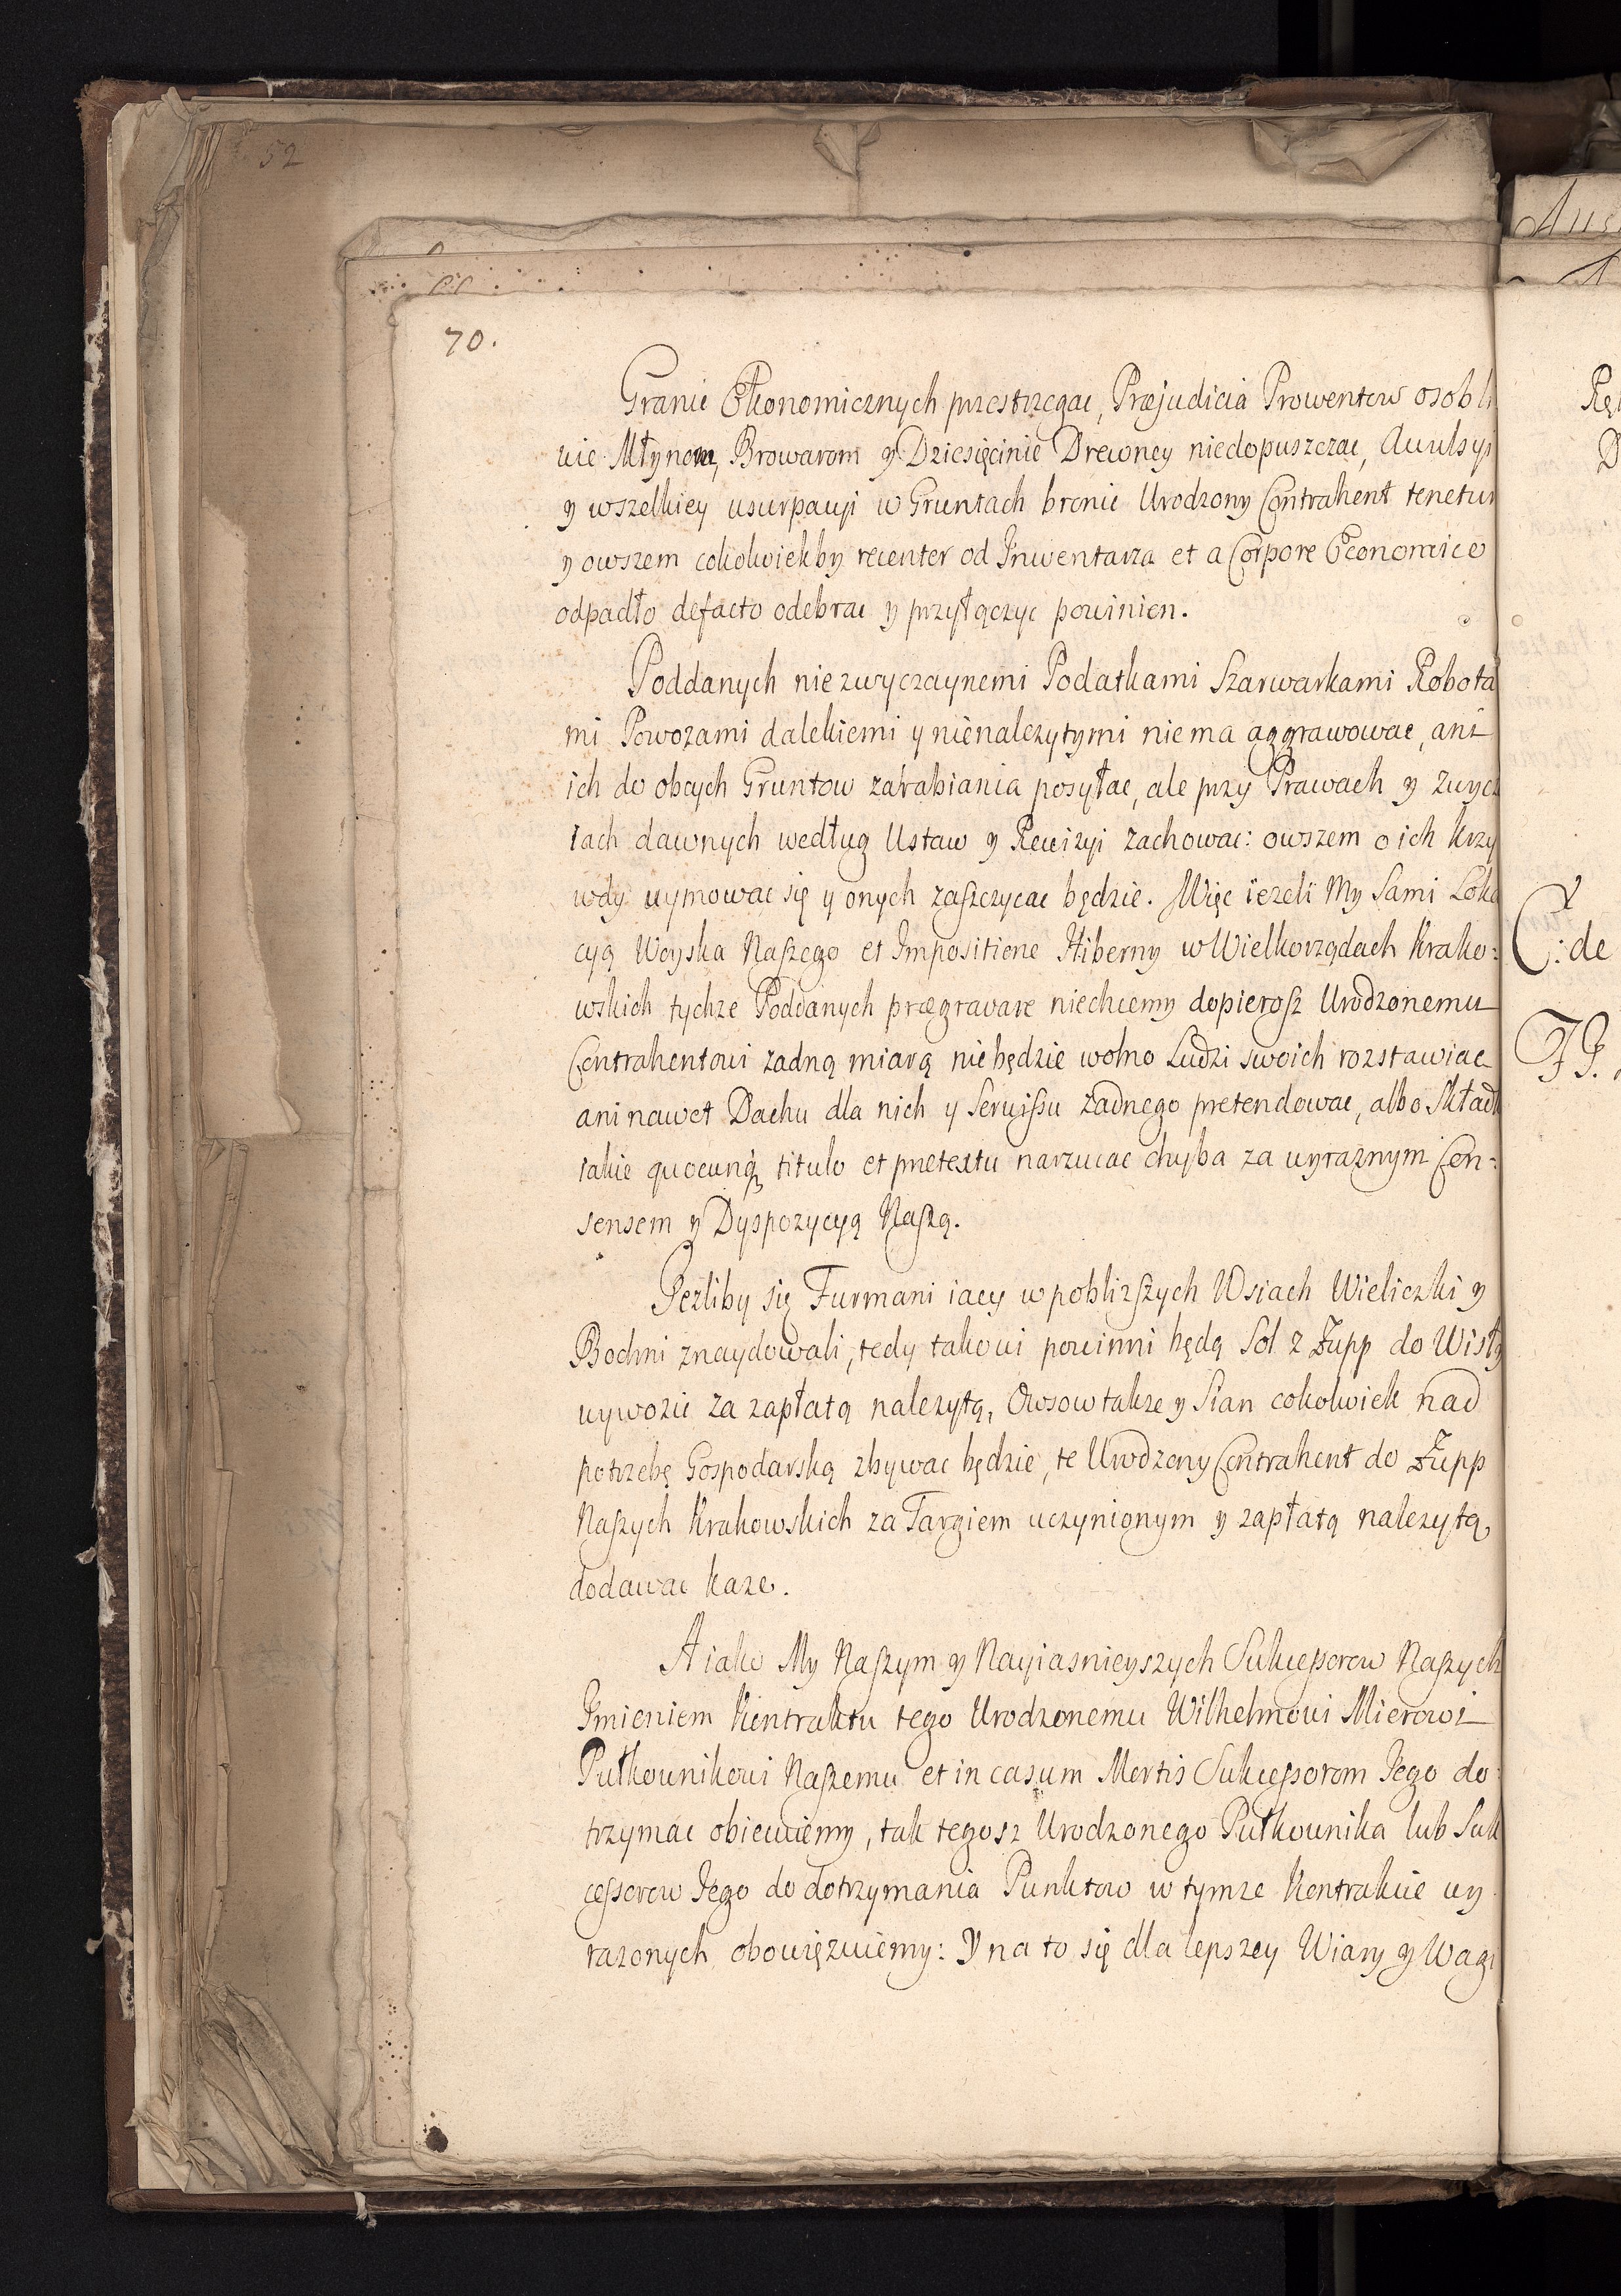 52
70.
Granic Ekonomicznych przestrzegac, Præjudicia Prowentow osobli
wie Młynom, Browarom y Dziesięcinie Drewney niedopuszczac, Avulsyi
y wszelkiey usurpacyi w Gruntach bronic Urodzony Contrahent tenetur
y owszem cokolwiekby recenter od Inwentarza et a Corpore Œconomico
odpadło defacto odebrac y przyłączyc powinien.
Poddanych niezwyczaynemi Podatkami Szarwarkami Robota
mi Powozami dalekiemi y nienależytymi niema aggrawowac, ani
ich do obcych Gruntow zarabiania posyłac, ale przy Prawach y Zwycz
iach dawnych według Ustaw y Rewizyi zachowac: owszem o ich krzy
wdy uymowac się y onych zaszczycac będzie. Więc ieżeli My Sami Loka
cyą Woyska Naszego et Impositione Hiberny w Wielkorządach Krako:
wskich tychże Poddanych prægravare niechcemy dopierosz Urodzonemu
Contrahentowi żadną miarą niebędzie wolno Ludzi swoich rozstawiac
ani nawet Dachu dla nich y Serwissu żadnego pretendowac, albo Składk
iakie quocunq; titulo et pretextu narzucac chyba za wyraznym Con:
sensem y Dyspozycyą Naszą.
Jezliby się Furmani iacy w poblizszych Wsiach Wieliczki y
Bochni znaydowali, tedy takowi powinni będą Sol z Żupp do Wisły
wywozic za zapłatą należytą, Owsow także y Sian cokolwiek nad
potrzebę Gospodarską zbywac będzie, te Urodzony Contrahent do Żupp
Naszych Krakowskich za Targiem uczynionym y zapłatą należytą,
dodawac każe.
A iako My Naszym y Nayiasnieyszych Sukcessorow Naszych
Imieniem Kontraktu tego Urodzonemu Wilhelmowi Mierowi
Pułkownikowi Naszemu et in casum Mortis Sukcessorom Jego do
trzymac obiecuiemy, tak tegosz Urodzonego Pułkownika lub Suk
cessorow Jego do dotrzymania Punktow w tymże Kontrakcie wy
rażonych obowięzuiemy: Y na to się dla lepszey Wiary y Wagi
C: de